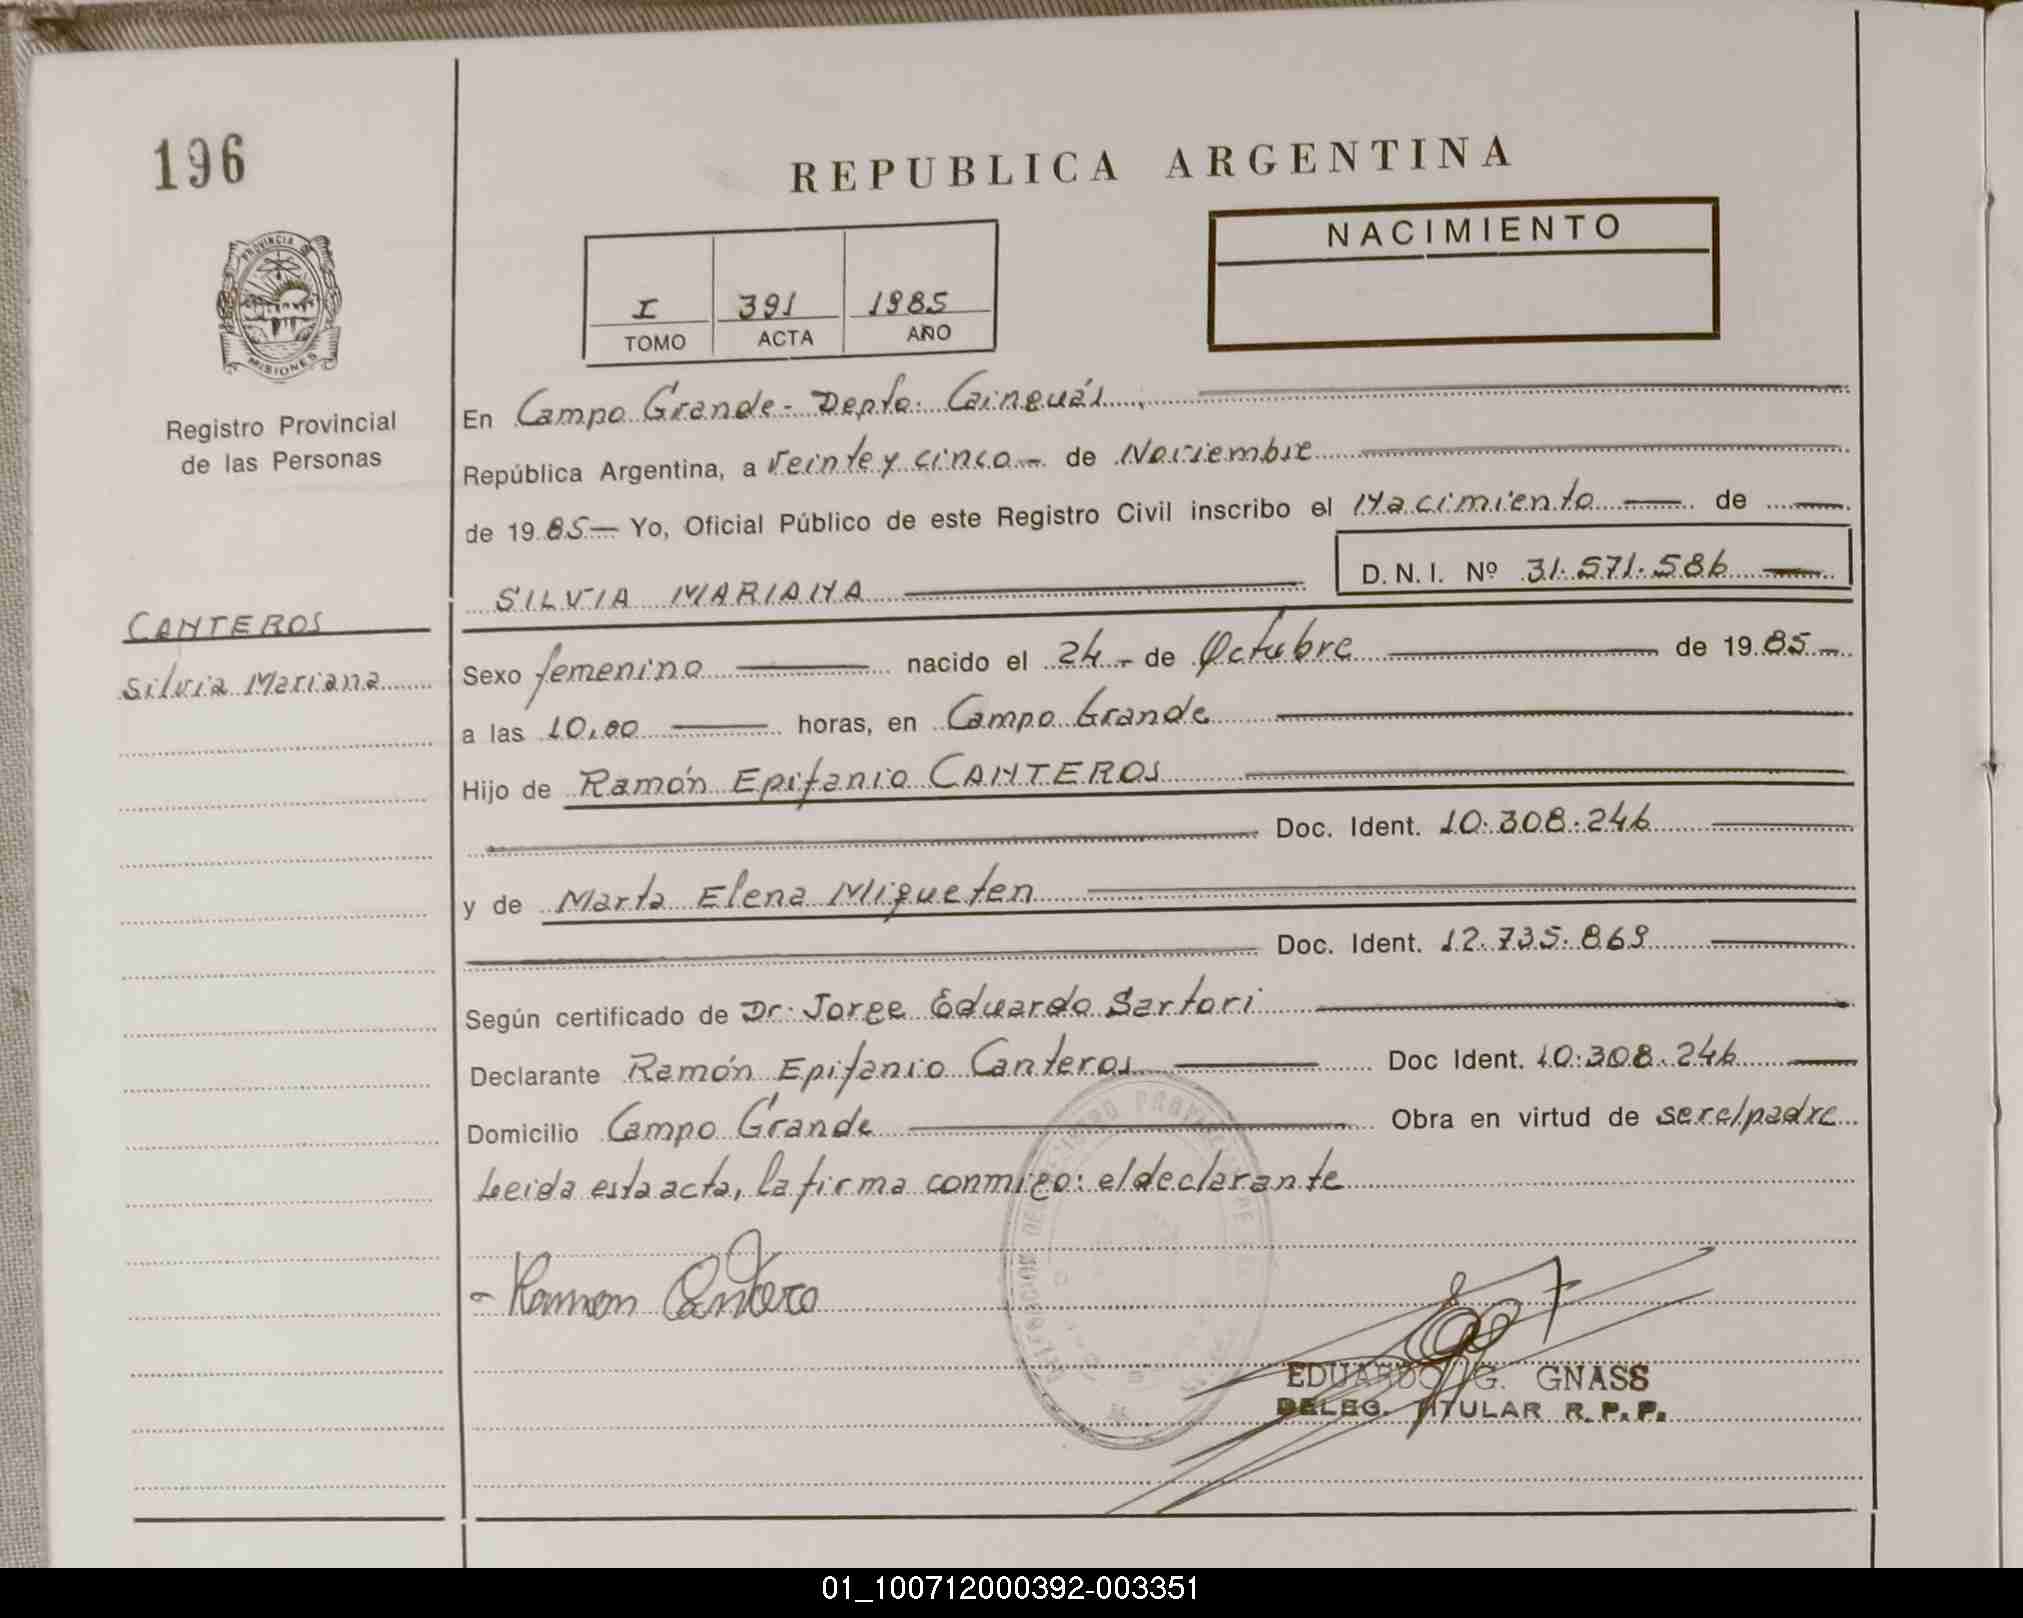 196
REPUBLICA ARGENTINA
NACIMIENTO
I 391 1985
TOMO ACTA AÑO
PROVINCIA DE MISIONES
Registro Provincial
de las Personas
En Campo Grande - Depto. Cainguás
República Argentina, a veinte y cinco - de Noviembre
de 1985 — Yo, Oficial Público de este Registro Civil inscribo el Nacimiento — de —
SILVIA MARIANA — D.N.I. Nº 31.571.586 —
CANTEROS
Silvia Mariana
Sexo femenino — nacido el 24 - de Octubre — de 1985 —
a las 10,00 — horas, en Campo Grande
Hijo de Ramón Epifanio CANTEROS
Doc. Ident. 10.308.246 —
y de Marta Elena Miqueten
Doc. Ident. 12.735.869 —
Según certificado de Dr. Jorge Eduardo Sartori
Declarante Ramón Epifanio Canteros — Doc Ident. 10.308.246 —
Domicilio Campo Grande — Obra en virtud de ser el padre
Leida esta acta, la firma conmigo: el declarante
- Ramon Cantero
EDUARDO G. GNASS
DELEG. TITULAR R.P.P.
01_100712000392-003351